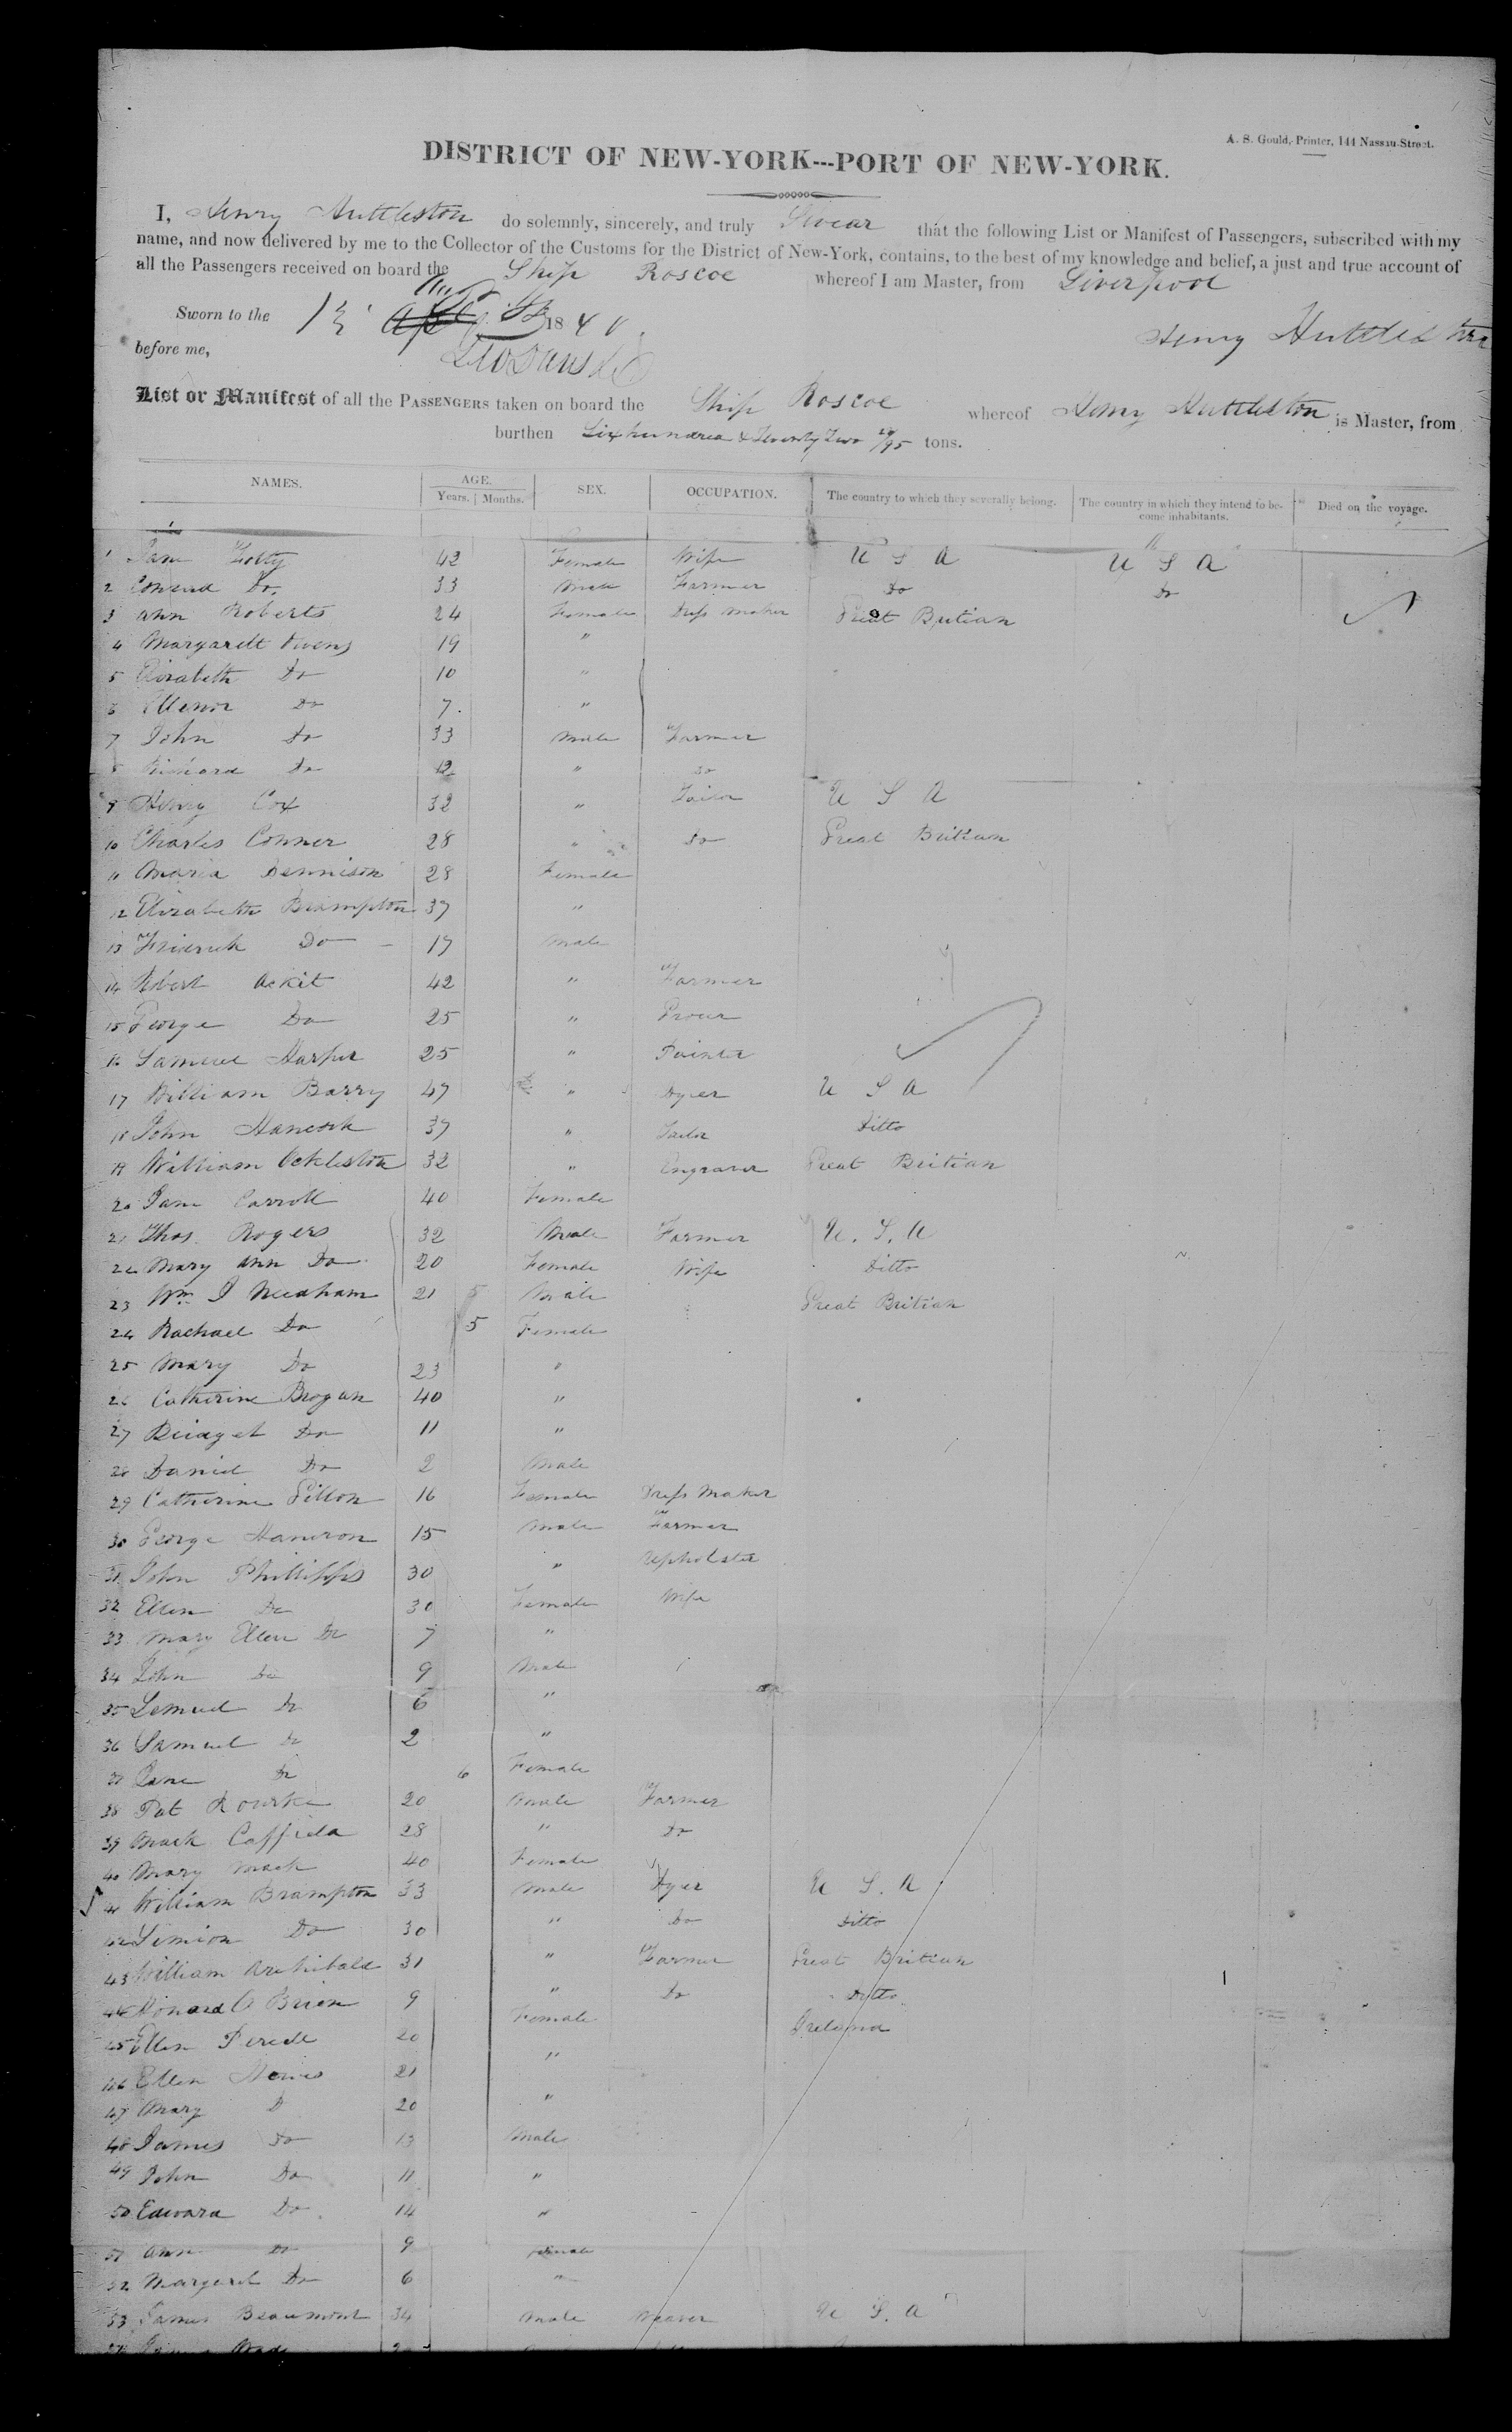 A. S. Gould, Printer, 144 Nassau-Street.
DISTRICT OF NEW-YORK---PORT OF NEW-YORK.
I, Henry Huttleston do solemnly, sincerely, and truly Swear that the following List or Manifest of Passengers, subscribed with my
name, and now delivered by me to the Collector of the Customs for the District of New-York, contains, to the best of my knowledge and belief, a just and true account of
all the Passengers received on board the Ship Roscoe whereof I am Master, from Liverpool
Sworn to the 13 1840.
Henry Huttleston
before me,
List or Manifest of all the PASSENGERS taken on board the Ship Roscoe whereof Henry Huttleston is Master, from
burthen Six hundred & Seventy Two /95 tons.
NAMES. AGE. SEX. OCCUPATION. The country to which they severally belong. The country in which they intend to be- Died on the voyage.
Years. Months. come inhabitants.
1 Jane 42 Female Wife U S A U S A
2 Conrad Do. 33 Male Farmer Do Do
3 Ann Roberts 24 Female Dress Maker Great Britian
4 Margarett Owens 19 "
5 Elizabeth Do 10 "
6 Ellenor Do 7. "
7 John Do 33 Male Farmer
8 Richard Do 12 " Do
9 Henry Cox 32 " Tailor U S A
10 Charles Conner 28 " Do Great Britian
11 Maria Dennison 28 Female
12 Elizabeth Brampton 37 "
13 Fredrick Do 17 Male
14 Robert Ackit 42 " Farmer
15 George Do 25 " Grocer
16 Samuel Harper 25 " Painter
17 William Barry 47 " Dyer U S A
18 John Hancock 37 " Tailor Ditto
19 William Ockleston 32 " Engraver Great Britian
20 Jane Carroll 40 Female
21 Thos. Rogers 32 Male Farmer U. S. A
22 Mary Ann Do 20 Female Wife Ditto
23 Wm J Meedham 21 Male Great Britian
24 Rachael Do 5 Female
25 Mary Do 23 "
26 Catherine Brogan 40 "
27 Bridget Do 11 "
28 Daniel Do 2 Male
29 Catherine Gillon 16 Female Dress Maker
30 George Hameron 15 Male Farmer
31 John Phillipps 30 " Upholster
32 Ellen Do 30 Female Wife
33 Mary Ellen Do 7 "
34 John Do 9 Male
35 Lemuel Do 6 "
36 Samuel Do 2 "
37 Jane Do 6 Female
38 Pat Rourke 20 Male Farmer
39 Mark Caffield 28 " Do
40 Mary Mack 40 Female
41 William Brampton 33 Male Dyer U S. A
42 Simion Do 30 " Do Ditto
43 William Archibald 31 " Farmer Great Britian
44 O Brien 9 " Do Ditto
45 Ellen 20 Female Ireland
46 Ellen 21 "
47 Mary D 20 "
48 James Do 13 Male
49 John Do 11 "
50 Edward Do 14 "
51 Ann Do 9 Female
52 Margaret Do 6 "
53 James Beaumont 34 Male Weaver U S. A